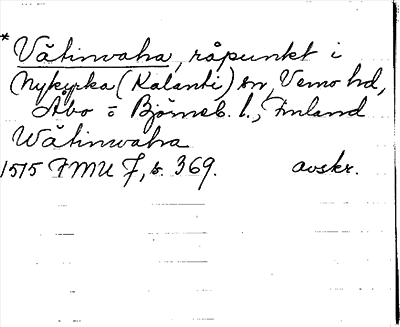 * Våtinvaha, råpunkt i
Nykyrka (Kalanti) sn, Vemo hd,
Åbo o Björneb. l., Finland
Wåtinvaha
1515 FMU 7, s. 369. avskr.